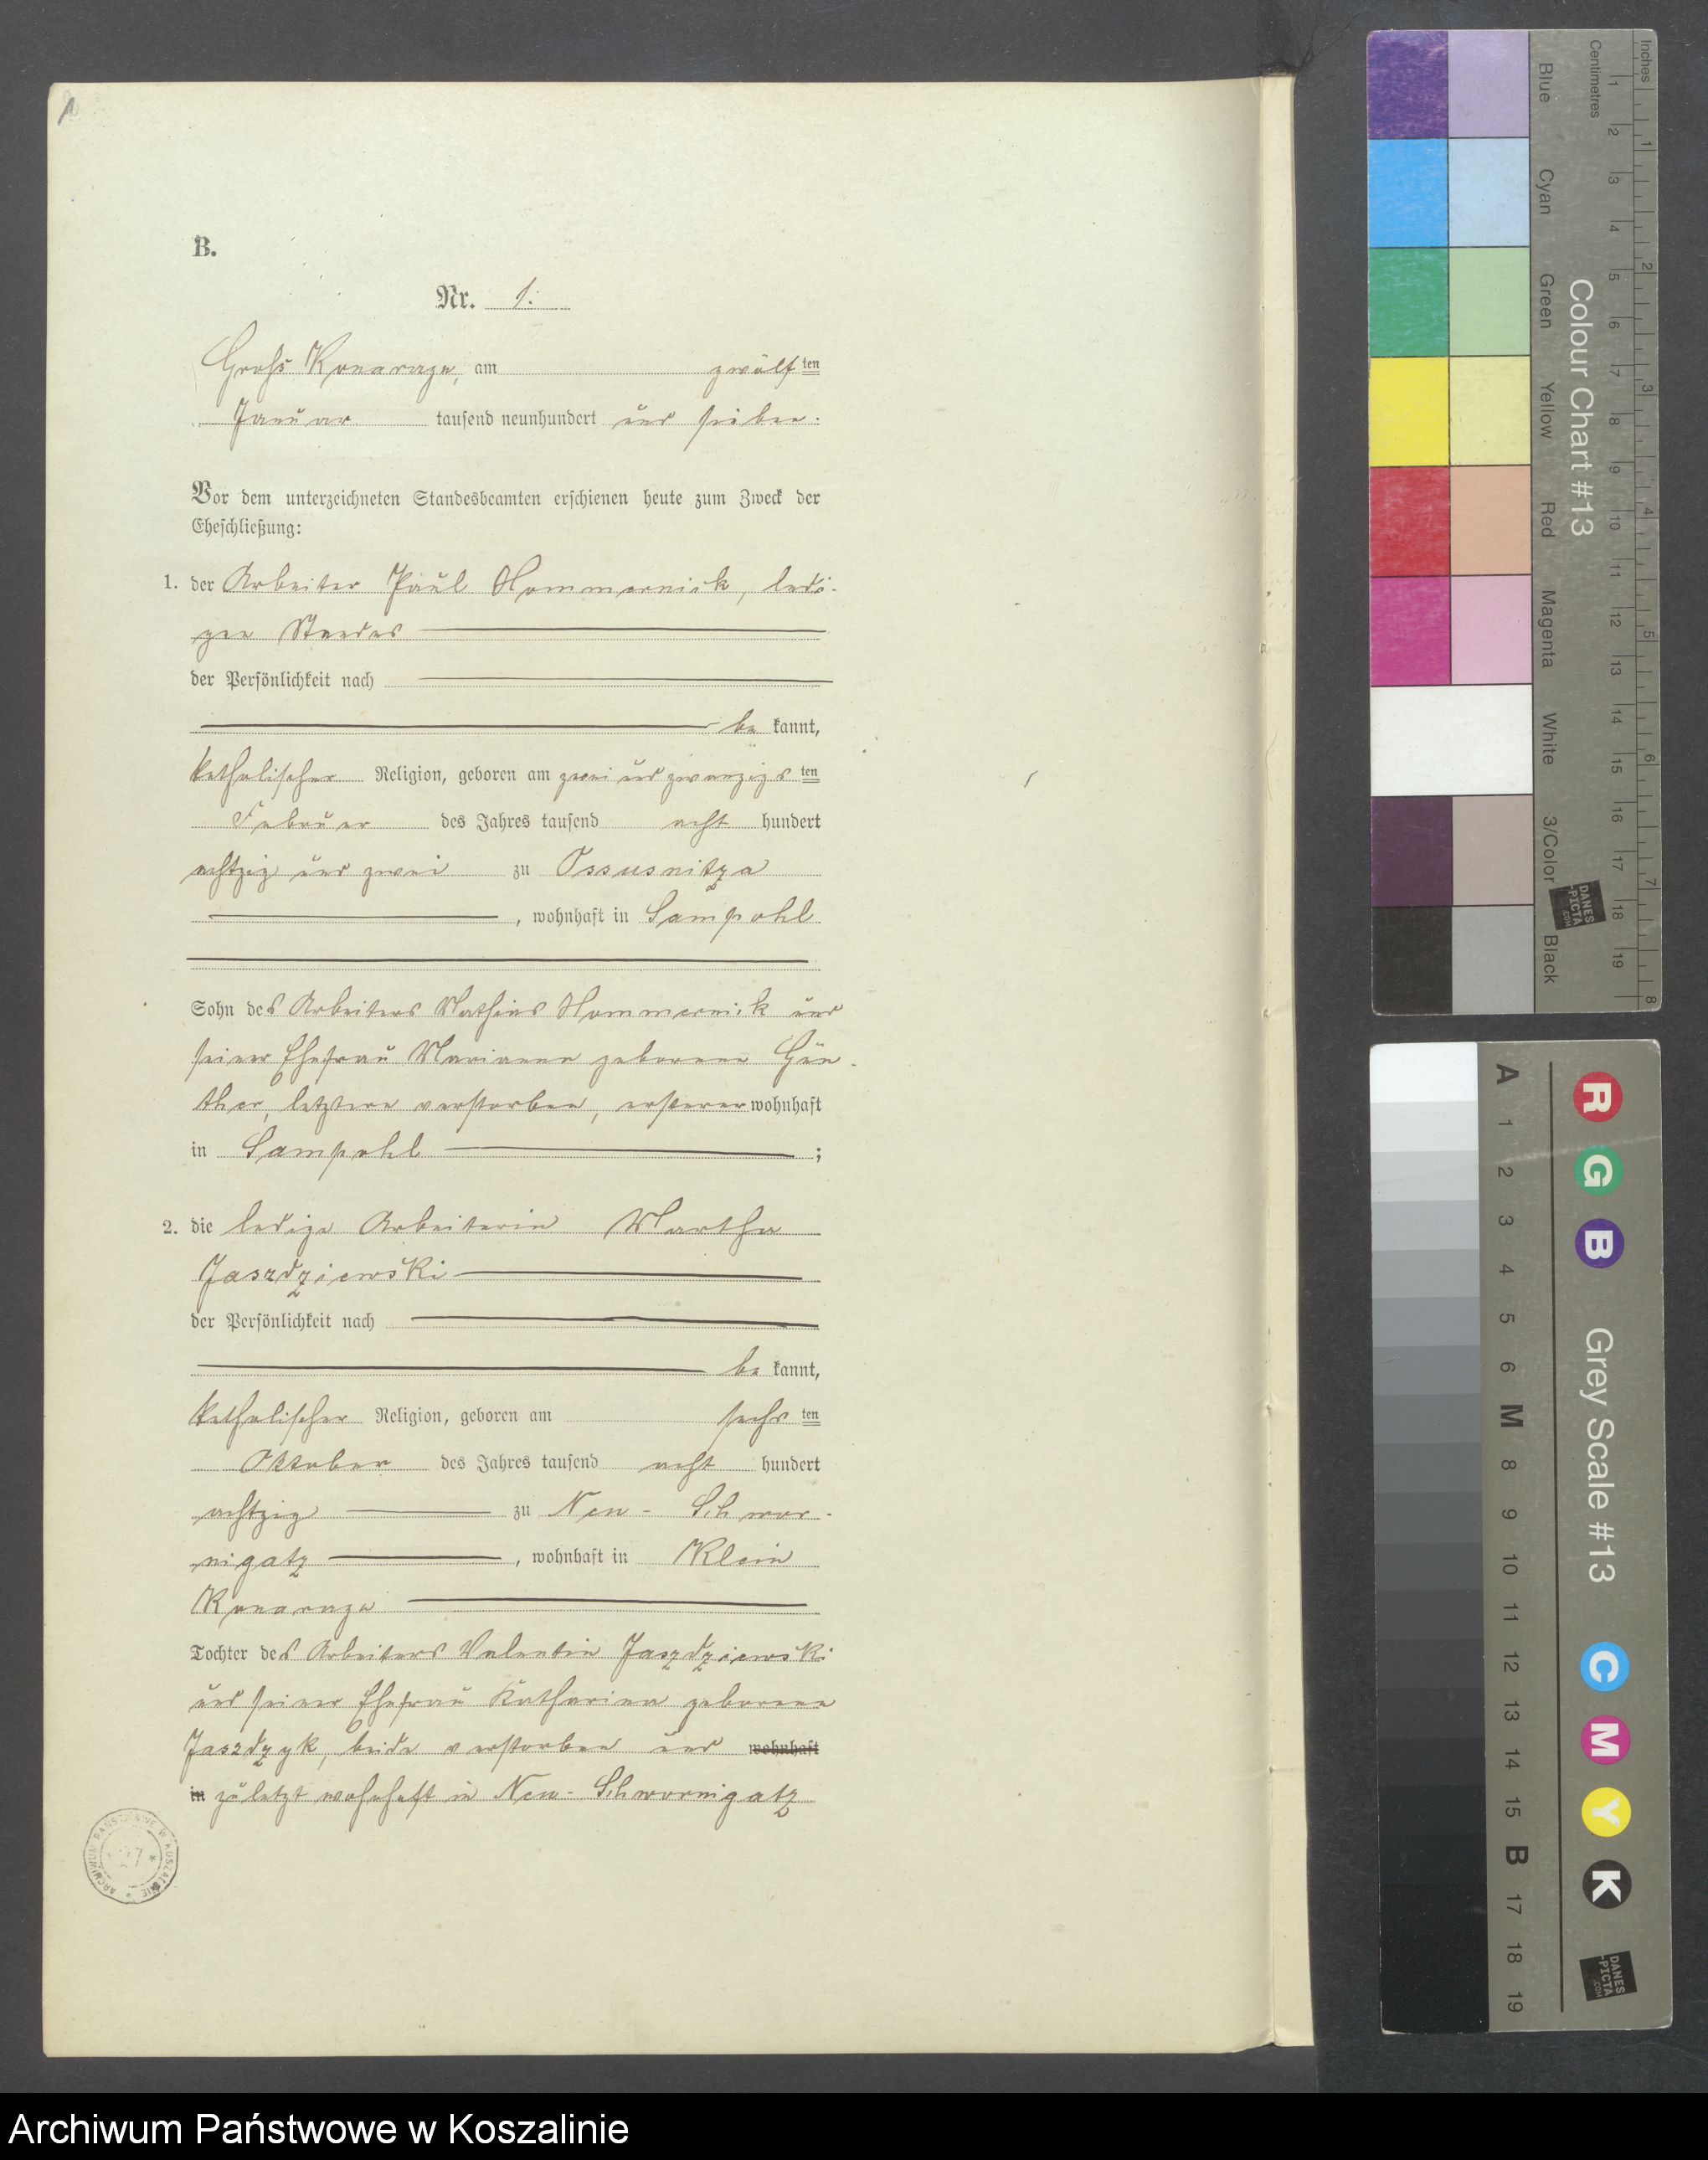 1
B.
Nr. 1.
Groß Konarzyn, am zwölften
Januar tausend neunhundert und sieben.
Vor dem unterzeichneten Standesbeamten erschienen heute zum Zweck der
Eheschließung:
1. der Arbeiter Paul Hommernick, ledi-
gen Standes
der Persönlichkeit nach
be kannt,
katholischer Religion, geboren am zwei und zwanzigsten
Februar des Jahres tausend acht hundert
achtzig und zwei zu Ossusnitza
, wohnhaft in Sampohl
Sohn des Arbeiters Mathias Hommernik und
seiner Ehefrau Marianna geborene Gün-
ther, letztere verstorben, ersterer wohnhaft
in Sampohl ;
2. die ledige Arbeiterin Martha
Jaszdziewski
der Persönlichkeit nach
be kannt,
katholischer Religion, geboren am sechsten
Oktober des Jahres tausend acht hundert
achtzig zu Neu-Schwor-
nigatz , wohnhaft in Klein
Konarzyn
Tochter des Arbeiters Valentin Jaszdziewski
und seiner Ehefrau Katharina geborene
Jaszdzyk, beide verstorben und wohnhaft
in zuletzt wohnhaft in Neu-Schwornigatz
ARCHIWUM PAŃSTWOWE W KOSZALINIE
Archiwum Państwowe w Koszalinie
Inches
Centimetres
1 2 3 4 5 6 7 8 9 10 11 12 13 14 15 16 17 18 19
1 2 3 4 5 6 7 8
Colour Chart #13
Blue
Cyan
Green
Yellow
Red
Magenta
White
3/Color
Black
DANES
-PICTA
.COM
Grey Scale #13
A 1 2 3 4 5 6 M 8 9 10 11 12 13 14 15 B 17 18 19
R
G
B
C
M
Y
K
DANES
-PICTA
.COM